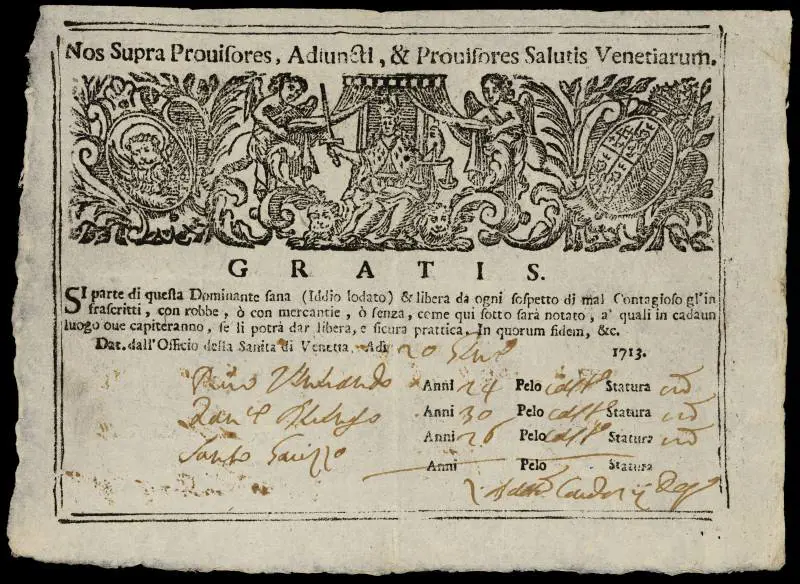 Nos Supra Prouiſores, Adiuncti, & Prouiſores Salutis Venetiarum.
GRATIS.
SI parte di queſta Dominante ſana (Iddio lodato) & libera da ogni ſoſpetto di mal Contagioſo gl'in
fraſcritti, con robbe, ò con mercantie, ò ſenza, come qui ſotto ſarà notato, a' quali in cadaun
luogo oue capiteranno, ſe li potrà dar libera, e ſicura prattica. In quorum fidem, &c.
Dat. dall'Officio della Sanità di Venetia. Adi 20 1713.
Anni 24 Pelo Statura
Anni 30 Pelo Statura
Anni 26 Pelo Statura
Santo
Anni Pelo Statura